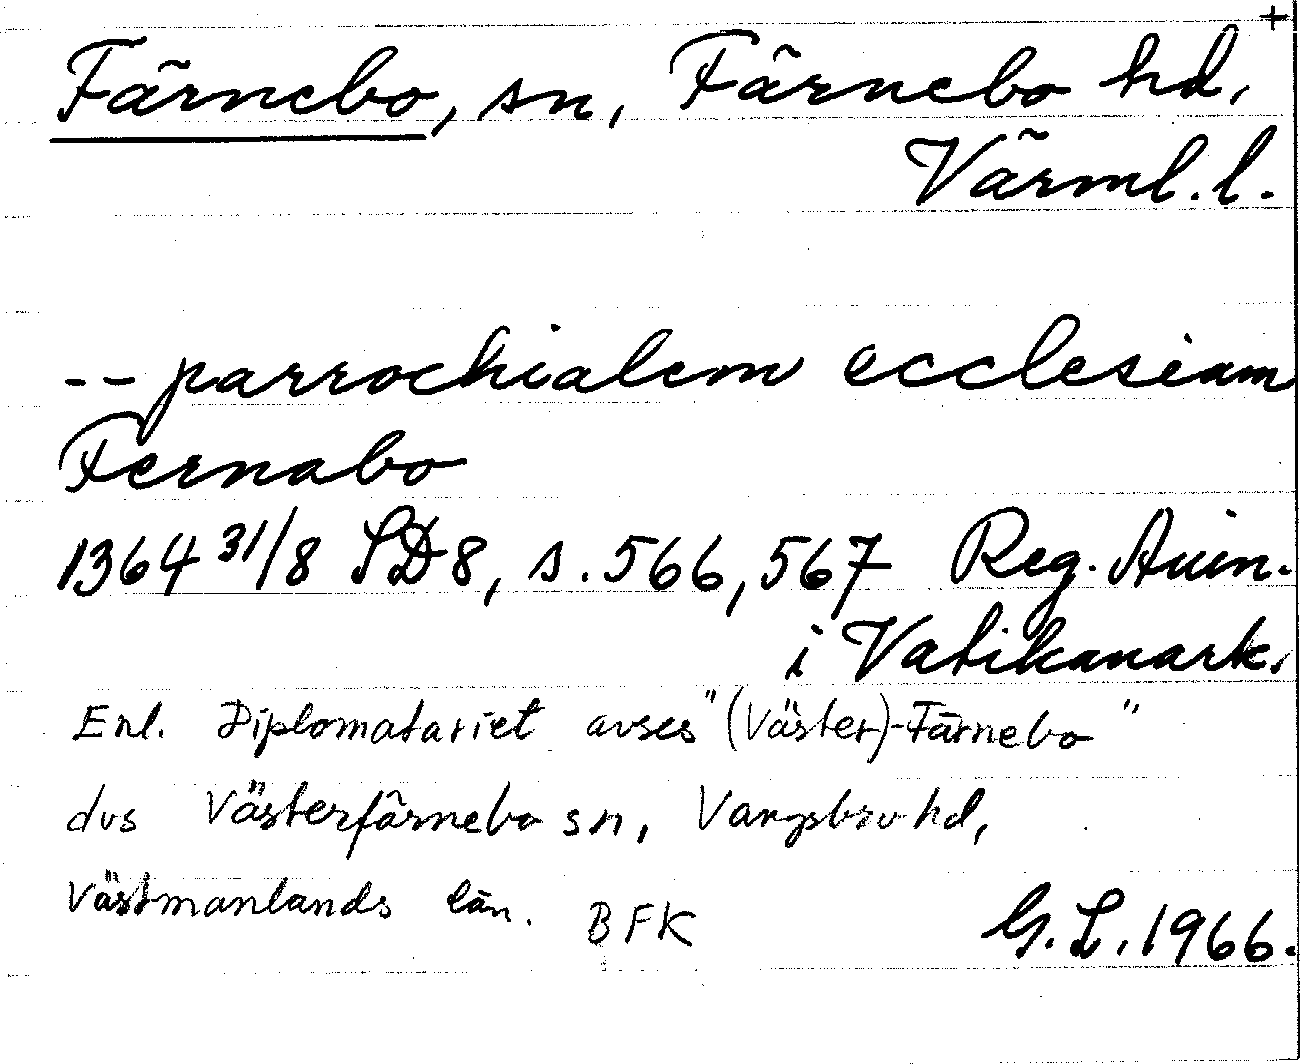 +
Färnebo, sn, Färnebo hd,
Värml. l.
-- parrochialem ecclesiam
Fernabo
1364 31/8 SD8, s. 566, 567 Reg. Avin.
i Vatikanark.
Enl. Diplomatariet avses "(Väster)-Färnebo"
dvs Västerfärnebo sn, Vangsbro hd,
Västmanlands län. BFK
G. L. 1966.